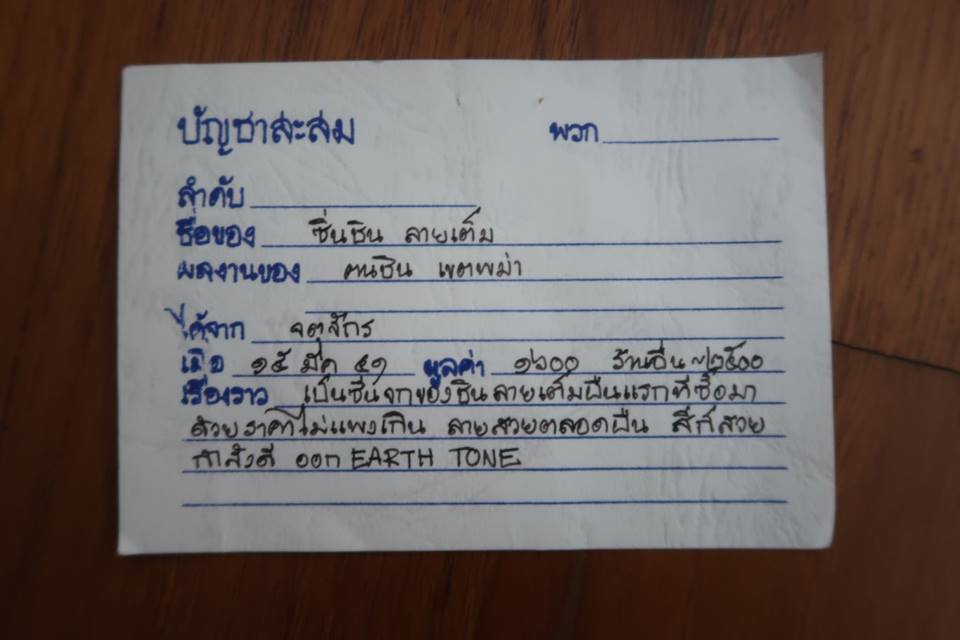 บัญชาสะสม พวก
ลำดับ
ชื่อของ ซิ่นชิน ลายเต็ม
ผลงานของ คนชิน เขตพม่า
ได้จาก จตุจักร
เมื่อ ๑๕ มีค ๔๑ มูลค่า ๑๖๐๐ ร้านอื่น ~๒๕๐๐
เรื่องราว เป็นซิ่นจกของชินลายเต็มผืนแรกที่ซื้อมา
ด้วยราคาไม่แพงเกิน ลายสวยตลอดผืน สีก็สวย
กำลังดี ออก EARTH TONE